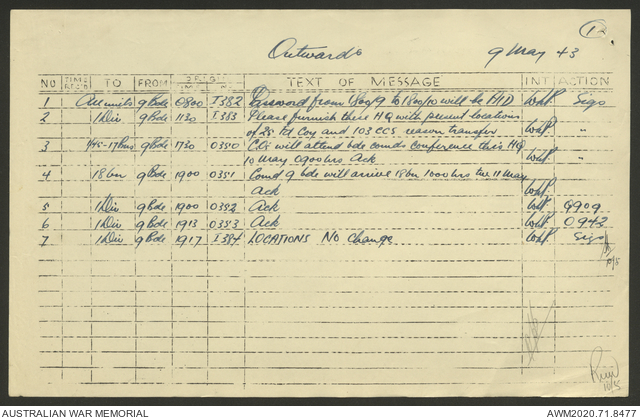 12
Outwards 9 May 43
NO TIME TO FROM TEXT OF MESSAGE INT ACTION
1 All units 9 Bde 0800 I382 Password from 1800/9 to 1800/10 will be Sigs
2 1 Div 9 Bde 1130 I383 Please furnish this HQ with present locations "
of 28 Fd Coy and 103 CCS reason transfer
3 9 Bde 1730 0380 COs will attend bde comds conference this HQ "
10 May 0900 hrs Ack
4 18 bn 9 Bde 1900 0381 Comd 9 bde will arrive 18 bn 1000 hrs tue 11 May
Ack
5 1 Div 9 Bde 1900 0382 Ack 0909
6 1 Div 9 Bde 1913 0383 Ack 0943
7 1 Div 9 Bde 1917 I384 LOCATIONS No change Sigs
10/5
10/5
AUSTRALIAN WAR MEMORIAL AWM2020.71.8477